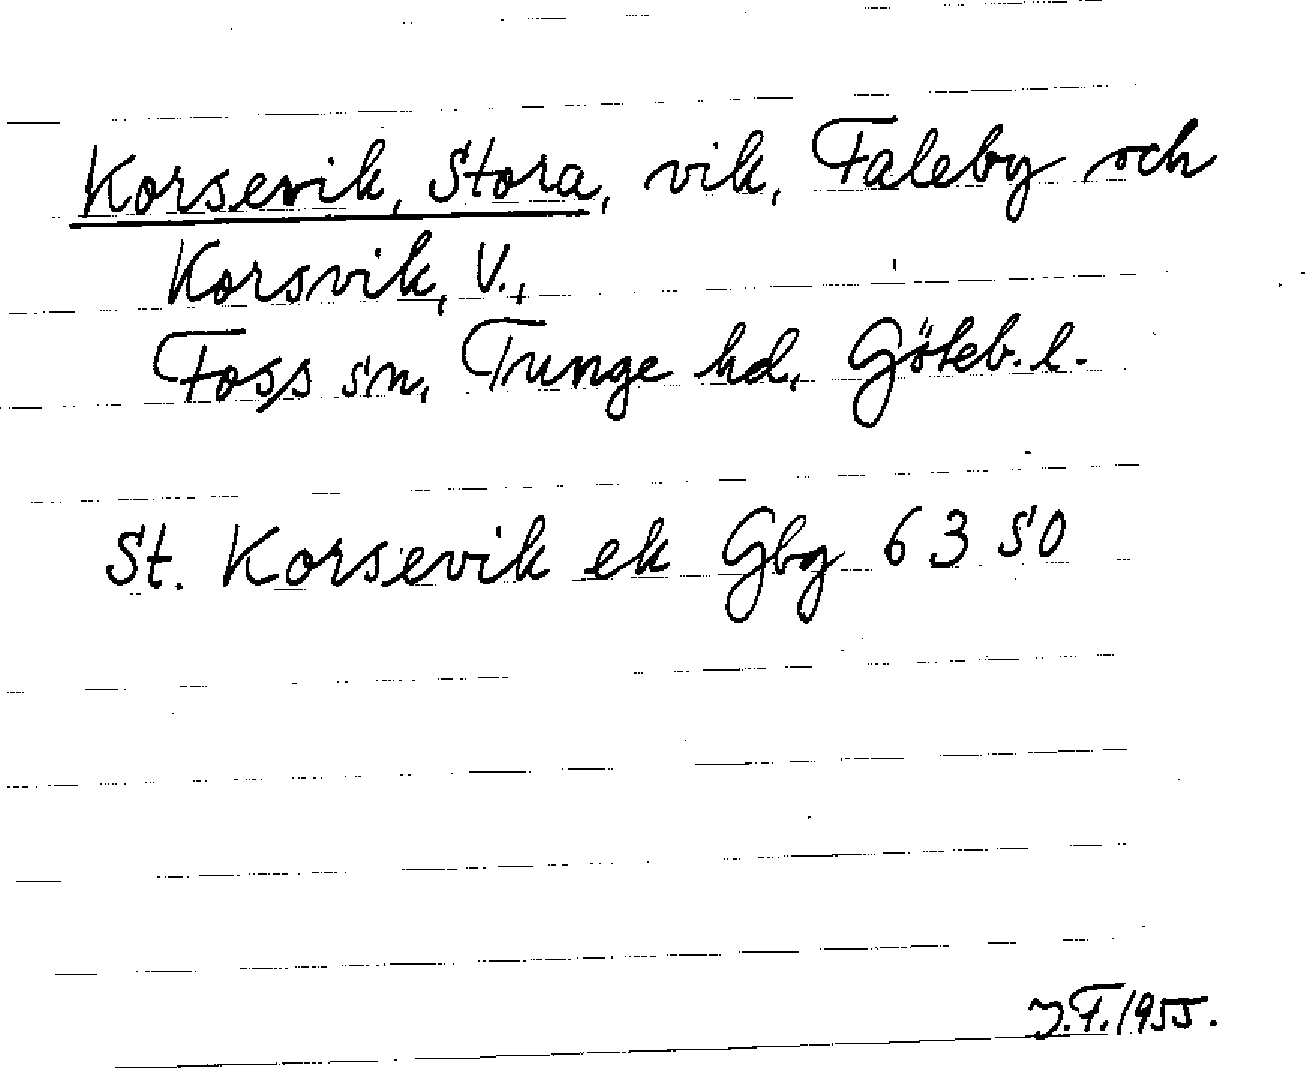 Korsevik, Stora, vik, Faleby och
Korsvik, V.,
Foss sn, Tunge hd, Göteb. l.
St. Korsevik ek Gbg 63 SO
J.F. 1955.